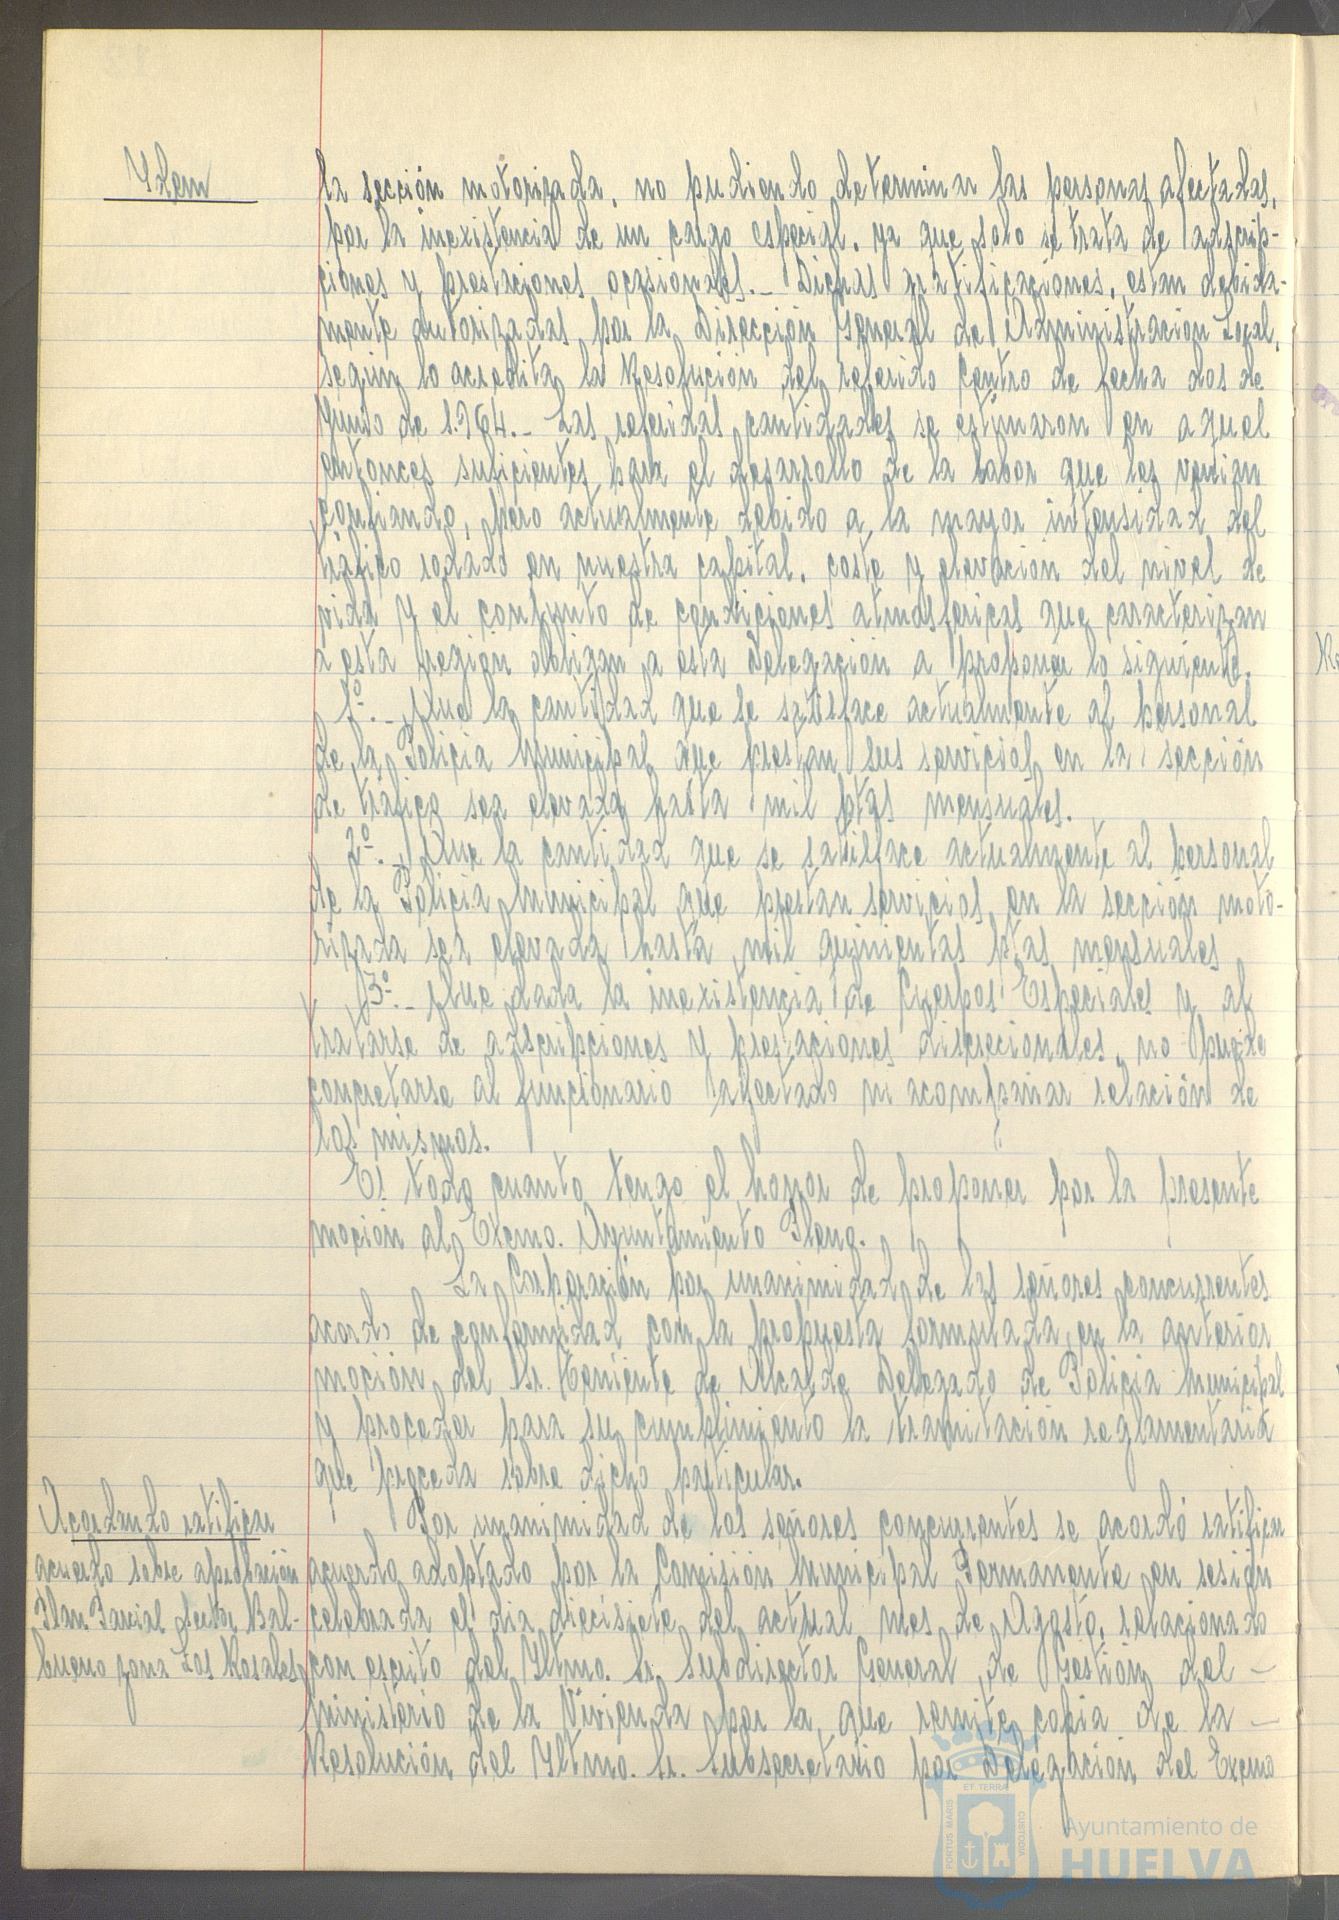 Ydem
la sección motorizada, no pudiendo determinar las personas afectadas,
por la inexistencia de un cargo especial, ya que solo se trata de adscrip-
ciones y prestaciones ocasionales.- Dichas gratificaciones, estan debida-
mente autorizadas por la Dirección General de Administración Local,
según lo acredita la Resolución del referido Centro de fecha dos de
Junio de 1.964.- Las referidas cantidades se estimaron en aquel
entonces suficientes para el desarrollo de la labor que les venian
confiando, pero actualmente debido a la mayor intensidad del
tráfico rodado en nuestra capital, coste y elevación del nivel de
vida y el conjunto de condiciones atmosfericas que caracterizan
a esta región obligan a esta Delegación a proponer lo siguiente.
1º.- Que la cantidad que se satisface actualmente al personal
de la Policia Municipal que prestan sus servicios en la sección
de tráfico sea elevada hasta mil ptas mensuales.
2º.- Que la cantidad que se satisface actualmente al personal
de la Policia Municipal que prestan servicios en la sección moto-
rizada sea elevada hasta mil quinientas ptas mensuales
3º.- Que dada la inexistencia de Cuerpos Especiales y al
tratarse de adscripciones y prestaciones discrecionales, no puede
concretarse al funcionario afectado ni acompañar relación de
los mismos.
Es todo cuanto tengo el honor de proponer por la presente
moción al Excmo. Ayuntamiento Pleno.
La Corporación por unanimidad de los señores concurrentes
acordó de conformidad con la propuesta formulada en la anterior
moción del Sr. Teniente de Alcalde Delegado de Policia Municipal
y proceder para su cumplimiento la tramitación reglamentaria
que proceda sobre dicho particular.
Acordando ratificar
acuerdo sobre aprobación
Plan Parcial Sector Bal-
bueno zona Los Rosales
Por unanimidad de los señores concurrentes se acordó ratificar
acuerdo adoptado por la Comisión Municipal Permanente en sesión
celebrada el dia diecisiete del actual mes de Agosto, relacionado
con escrito del Yltmo. Sr. Subdirector General de Gestión del -
Ministerio de la Vivienda por la que remite copia de la -
Resolución del Yltmo. Sr. Subsecretario por delegación del Excmo
PORTUS MARIS
ET TERRAE
CUSTODIA
Ayuntamiento de
HUELVA